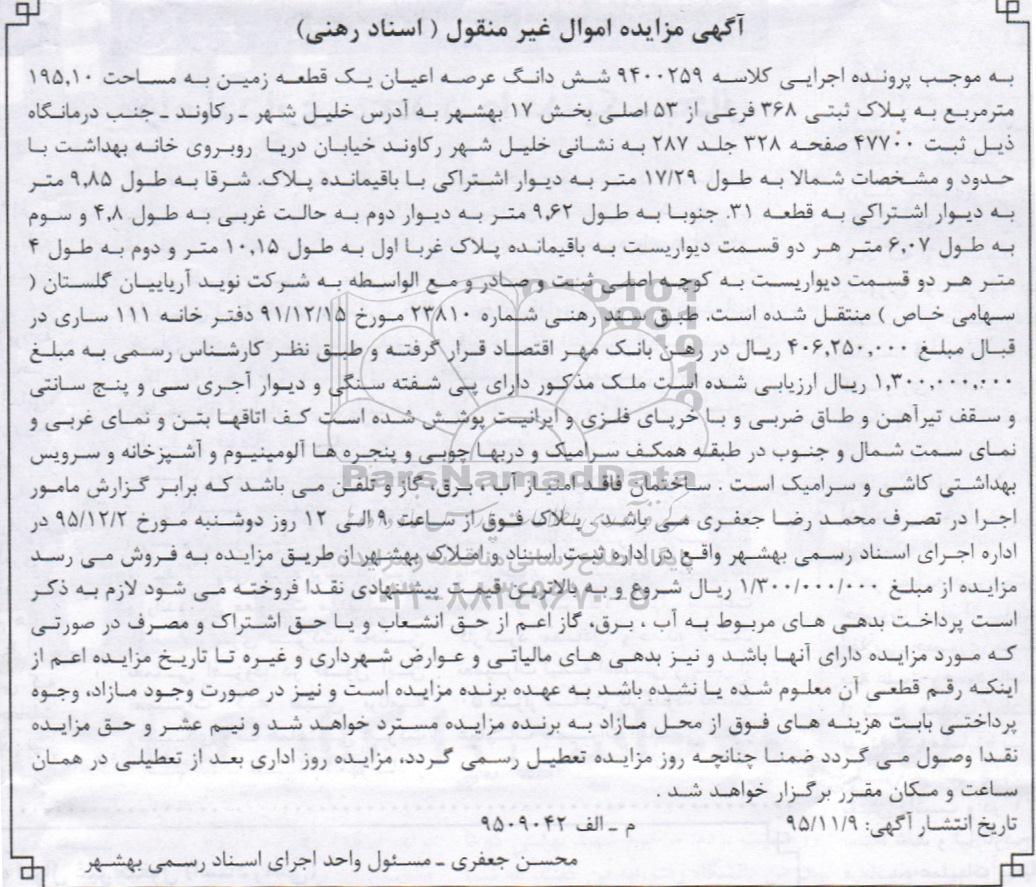 آگهی مزایده اموال غیر منقول ( اسناد رهنی)
به موجب پرونده اجرایی کلاسه ۹۴۰۰۲۵۹ شش دانگ عرصه اعیان یک قطعه زمین به مساحت ۱۹۵,۱۰
مترمربع به پلاک ثبتی ۳۶۸ فرعی از ۵۳ اصلی بخش ۱۷ بهشهر به آدرس خلیل شهر ـ رکاوند ـ جنب درمانگاه
ذیل ثبت ۴۷۷۰۰ صفحه ۳۲۸ جلد ۲۸۷ به نشانی خلیل شهر رکاوند خیابان دریا روبروی خانه بهداشت با
حدود و مشخصات شمالا به طول ۱۷/۲۹ متر به دیوار اشتراکی با باقیمانده پلاک. شرقا به طول ۹,۸۵ متر
به دیوار اشتراکی به قطعه ۳۱. جنوبا به طول ۹,۶۲ متر به دیوار دوم به حالت غربی به طول ۴,۸ و سوم
به طول ۶,۰۷ متر هر دو قسمت دیواریست به باقیمانده پلاک غربا اول به طول ۱۰,۱۵ متر و دوم به طول ۴
متر هر دو قسمت دیواریست به کوچه اصلی ثبت و صادر و مع الواسطه به شرکت نوید آریاییان گلستان (
سهامی خاص ) منتقل شده است. طبق سند رهنی شماره ۲۳۸۱۰ مورخ ۹۱/۱۲/۱۵ دفتر خانه ۱۱۱ ساری در
قبال مبلغ ۴۰۶,۲۵۰,۰۰۰ ریال در رهن بانک مهر اقتصاد قرار گرفته و طبق نظر کارشناس رسمی به مبلغ
۱,۳۰۰,۰۰۰,۰۰۰ ریال ارزیابی شده است ملک مذکور دارای پی شفته سنگی و دیوار آجری سی و پنج سانتی
و سقف تیرآهن و طاق ضربی و با خرپای فلزی و ایرانیت پوشش شده است کف اتاقها بتن و نمای غربی و
نمای سمت شمال و جنوب در طبقه همکف سرامیک و دربها چوبی و پنجره ها آلومینیوم و آشپزخانه و سرویس
بهداشتی کاشی و سرامیک است . ساختمان فاقد امتیاز آب ، برق، گاز و تلفن می باشد که برابر گزارش مامور
اجرا در تصرف محمد رضا جعفری می باشد. پلاک فوق از ساعت ۹ الی ۱۲ روز دوشنبه مورخ ۹۵/۱۲/۲ در
اداره اجرای اسناد رسمی بهشهر واقع در اداره ثبت اسناد و املاک بهشهر از طریق مزایده به فروش می رسد
مزایده از مبلغ ۱/۳۰۰/۰۰۰/۰۰۰ ریال شروع و به بالاترین قیمت پیشنهادی نقدا فروخته می شود لازم به ذکر
است پرداخت بدهی های مربوط به آب ، برق، گاز اعم از حق انشعاب و یا حق اشتراک و مصرف در صورتی
که مورد مزایده دارای آنها باشد و نیز بدهی های مالیاتی و عوارض شهرداری و غیره تا تاریخ مزایده اعم از
اینکه رقم قطعی آن معلوم شده یا نشده باشد به عهده برنده مزایده است و نیز در صورت وجود مازاد، وجوه
پرداختی بابت هزینه های فوق از محل مازاد به برنده مزایده مسترد خواهد شد و نیم عشر و حق مزایده
نقدا وصول می گردد ضمنا چنانچه روز مزایده تعطیل رسمی گردد، مزایده روز اداری بعد از تعطیلی در همان
ساعت و مکان مقرر برگزار خواهد شد .
تاریخ انتشار آگهی: ۹۵/۱۱/۹ م ـ الف ۹۵۰۹۰۴۲
محسن جعفری ـ مسئول واحد اجرای اسناد رسمی بهشهر
ParsNamadData